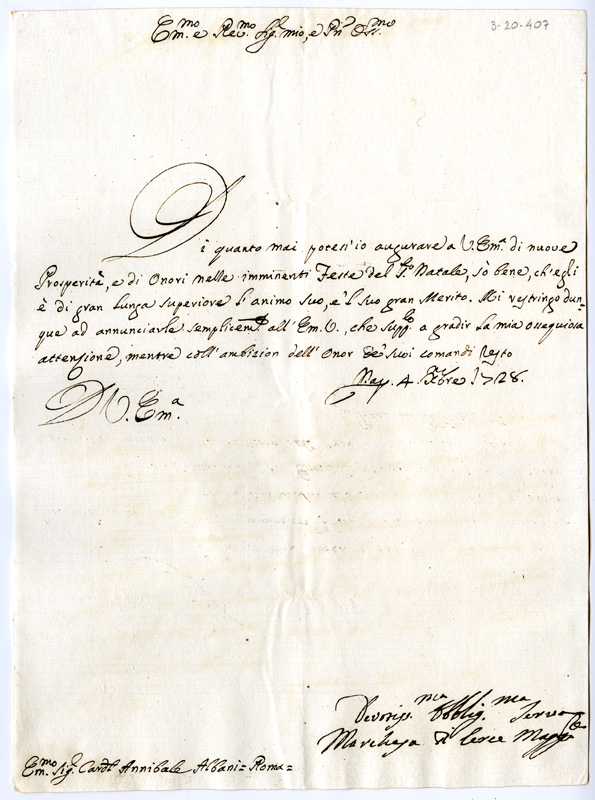 3-20-407
Em.mo e Rev.mo Sig. mio, e Pne Oss.mo
Di quanto mai potess'io augurare a V. Em.a di nuove
Prosperità, e di Onori nelle imminenti Feste del S.to Natale, sò bene, ch'egli
è di gran lunga superiore l'animo suo, e 'l suo gran Merito. Mi restringo dun-
que ad annunciarle semplicem.te all'Em. V., che supp.co a gradir la mia ossequiosa
attenzione, mentre coll'ambizion dell'Onor de' suoi comandi resto
Nap. 4. Xbre 1728.
D V. Em.a
Devotiss.ma Obblig.ma Serva
Marchesa di Cerce Magg.re
Em.mo Sig.r Card.l Annibale Albani = Roma =